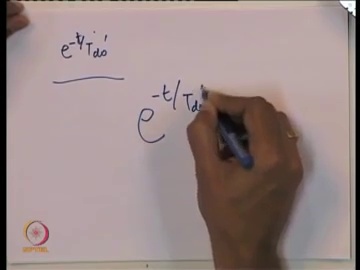 e^{-t/T_{do}'}
e^{-t/T_{do}'}
NPTEL